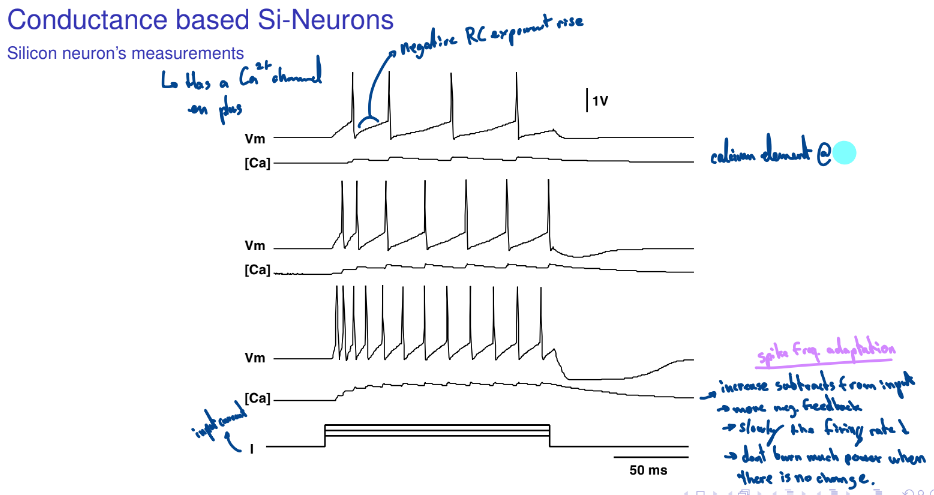 Conductance based Si-Neurons
Silicon neuron's measurements
negative RC exponent rise
Has a Ca²⁺ channel
en plus
1V
Vm
[Ca]
calcium element @
Vm
[Ca]
Vm
spike freq adaptation
[Ca]
→ increase subtracts from input
→ more neg. feedback
→ slowly the firing rate ↓
→ don't burn much power when
there is no change.
input current
I
50 ms